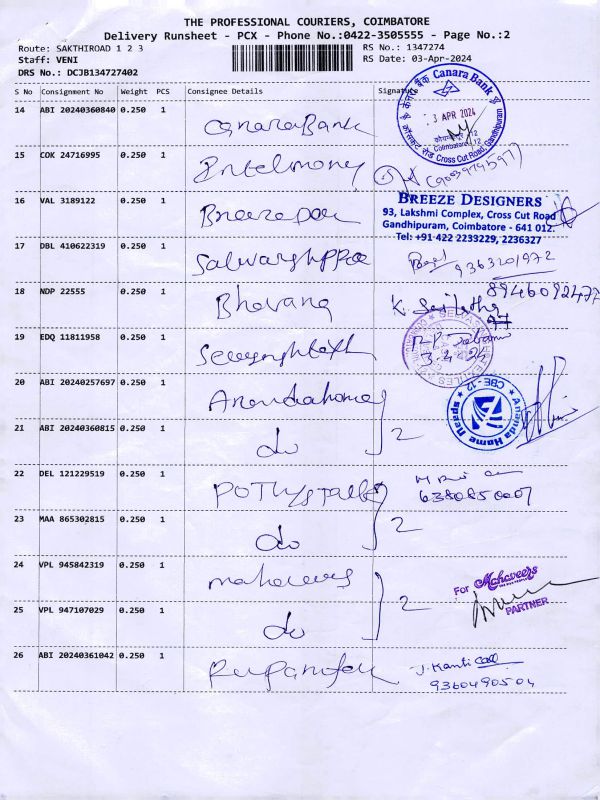 THE PROFESSIONAL COURIERS, COIMBATORE
Delivery Runsheet - PCX - Phone No.:0422-3505555 - Page No.:2
Route: SAKTHIROAD 1 2 3
RS No.: 1347274
Staff: VENI
RS Date: 03-Apr-2024
DRS No.: DCJB134727402
S No Consignment No Weight PCS Consignee Details Signature
14 ABI 20240360840 0.250 1 Canara Bank
केनरा बैंक Canara Bank
3 APR 2024
Coimbatore - 12
Cross Cut Road, Gandhipuram
15 COK 24716995 0.250 1
16 VAL 3189122 0.250 1
BREEZE DESIGNERS
93, Lakshmi Complex, Cross Cut Road
Gandhipuram, Coimbatore - 641 012.
Tel: +91 422 2233229, 2236327
17 DBL 410622319 0.250 1
9363201972
18 NDP 22555 0.250 1 Bhavana
8946092477
19 EDQ 11811958 0.250 1
3-4-24
20 ABI 20240257697 0.250 1 Anandhahomes
CBE-12
Ananda Home Near
21 ABI 20240360815 0.250 1 do 2
22 DEL 121229519 0.250 1 POTHYS
6380850007
23 MAA 865302815 0.250 1 do 2
24 VPL 945842319 0.250 1 mahaveers
For Mahaveers
PARTNER
25 VPL 947107029 0.250 1 do 2
26 ABI 20240361042 0.250 1
J. Kanti
9360490504